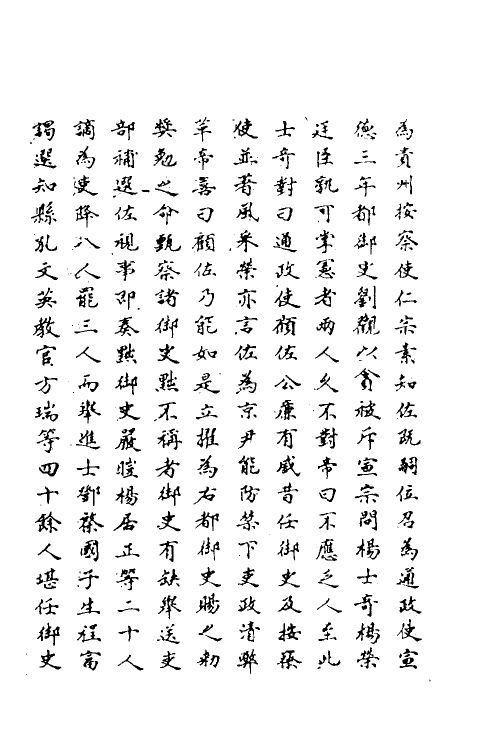 為貴州按察使仁宗素知佐既嗣位召為通政使宣
德三年都御史劉觀以貪被斥宣宗問楊士奇楊榮
廷臣孰可掌憲者兩人久不對帝曰不應乏人至此
士奇對曰通政使顧佐公廉有威昔任御史及按察
使並著風采榮亦言佐為京尹能防禁下吏政清弊
革帝喜曰顧佐乃能如是立擢為右都御史賜之勑
奬勉之命甄察諸御史黜不稱者御史有缺舉送吏
部補選佐視事即奏黜御史嚴暟楊居正等二十人
謫為吏降八人罷三人而舉進士鄧棨國子生程富
謁選知縣孔文英教官方瑞等四十餘人堪任御史